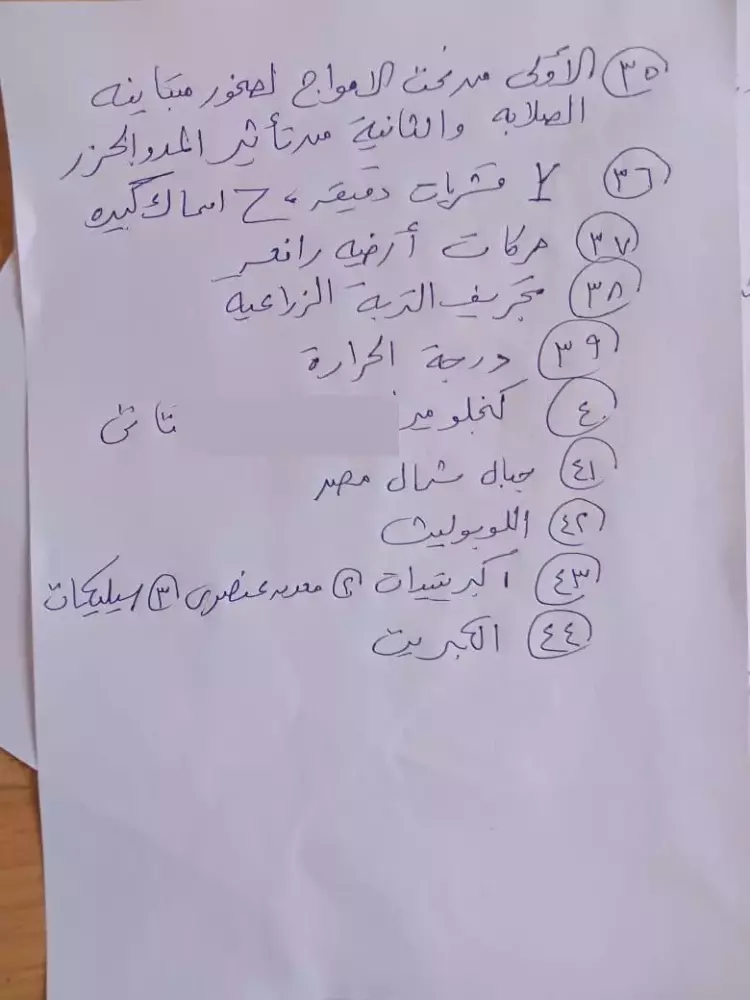 ٣٥ الأولى من نحت الامواج لصخور متباينه
الصلابه والثانية من تأثير المد والجزر
٣٦ Y قشريات دقيقه، ح اسماك كبيره
٣٧ حركات أرضيه رافعه
٣٨ تجريف التربة الزراعية
٣٩ درجة الحرارة
٤٠
٤١ جبال شمال مصر
٤٢ اللوبوليث
٤٣ اكبريتيدات ٢ معدن عنصرى ٣ سيليكات
٤٤ الكبريت